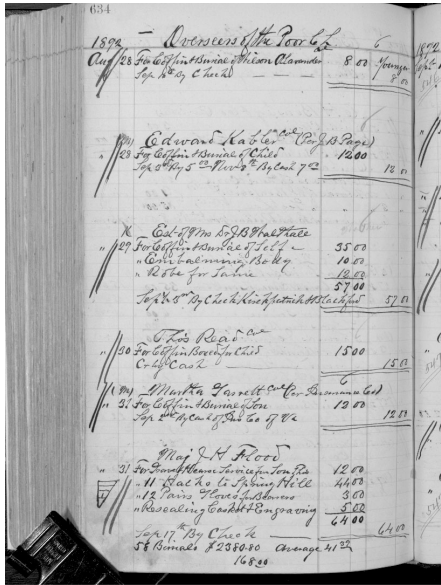 634
1892 - Overseers of the Poor C. L. 6
Aug 28 For Coffin & Burial of Wilson Alexander 8 00 Younger
Sep By Check 8 00
Edward Kabler Col (Per J. B. Page)
" 28 For Coffin & Burial of Child 12 00
Sep By 5 00 Nov By Cash 7 00 12 00
Est of Mrs Dr J. B.
" 29 For Coffin & Burial of Self 35 00
" Embalming Body 10 00
" Robe for Same 12 00
57 00
Sept By Check Kirkpatrick & Blackford 57 00
Thos Read Col
" 30 For Coffin Box for Child 15 00
Cr By Cash 15 00
6
Martha Garrett Col (Per Insurance Co)
" 31 For Coffin & Burial of Son 12 00
Sep 2 By Cash of Ins Co of Va 12 00
Maj J. H. Flood
" 31 For Hearse Service for Son 12 00
" 11 Hacks to Spring Hill 44 00
" 12 Pairs Gloves for Bearers 3 00
" Resealing Casket & Engraving 5 00
64 00
Sep 17th By Check 64 00
58 Burials $2380.80 Average 41
168.00